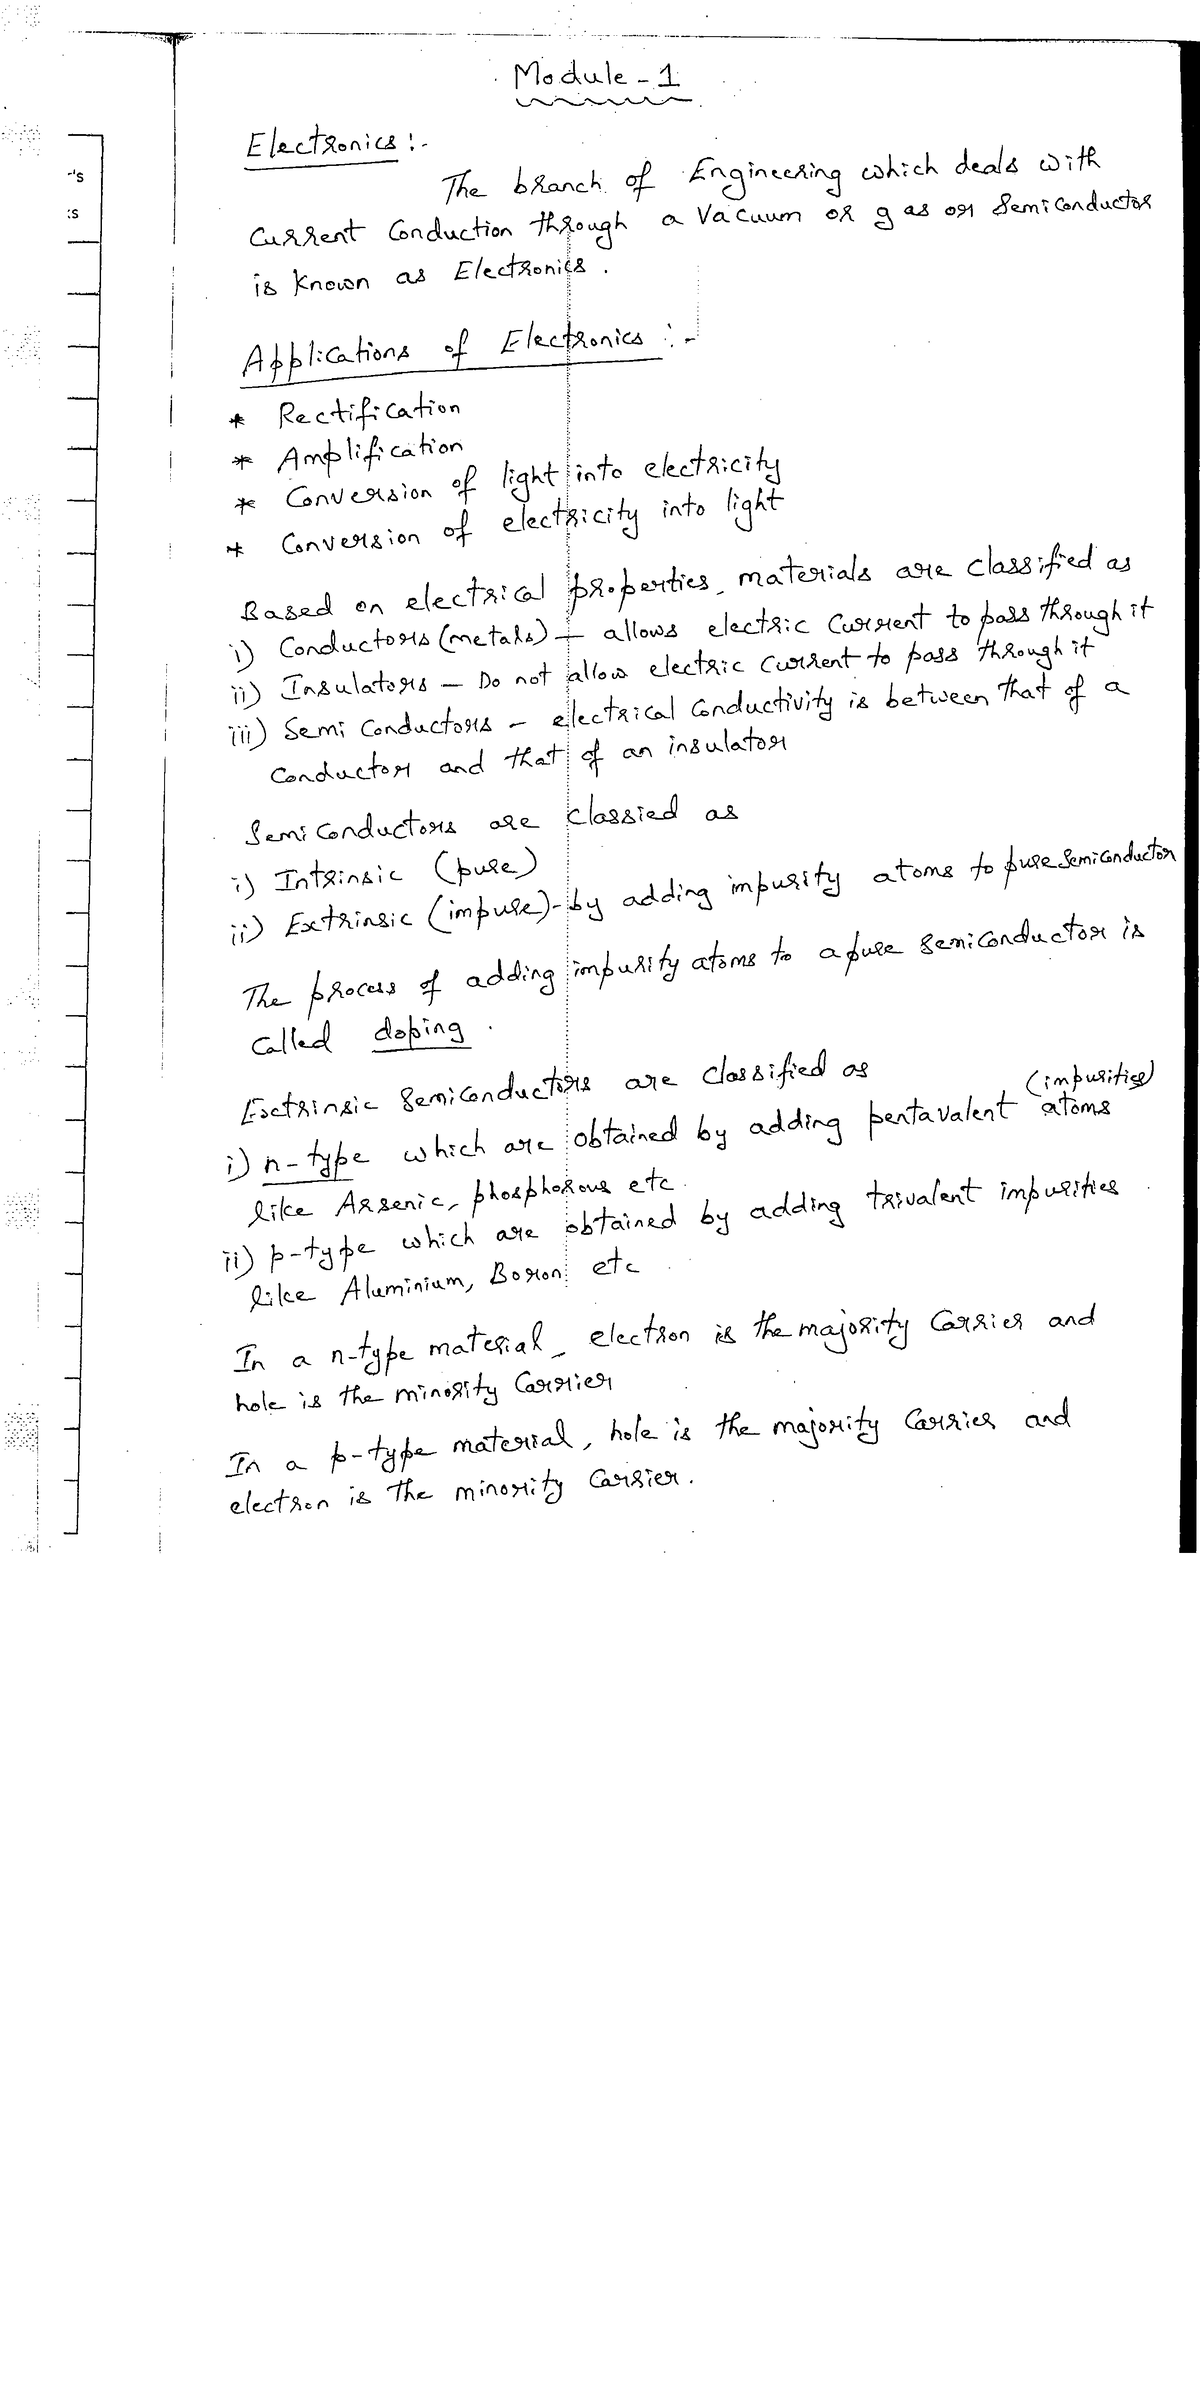 Module - 1
Electronics :-
The branch of Engineering which deals with
Current Conduction through a Vacuum or gas or Semiconductor
is known as Electronics.
Applications of Electronics :-
* Rectification
* Amplification
* Conversion of light into electricity
* Conversion of electricity into light
Based on electrical properties, materials are classified as
i) Conductors (metals) - allows electric current to pass through it
ii) Insulators - Do not allow electric current to pass through it
iii) Semi Conductors - electrical Conductivity is between that of a
Conductor and that of an insulator
Semi Conductors are classied as
i) Intrinsic (pure)
ii) Extrinsic (impure) - by adding impurity atoms to pure Semiconductor
The process of adding impurity atoms to a pure Semiconductor is
called doping.
Extrinsic Semiconductors are classified as
(impurities)
i) n-type which are obtained by adding pentavalent atoms
like Arsenic, phosphorous etc.
ii) p-type which are obtained by adding trivalent impurities
like Aluminium, Boron etc
In a n-type material, electron is the majority Carrier and
hole is the minority Carrier
In a p-type material, hole is the majority Carrier and
electron is the minority Carrier.